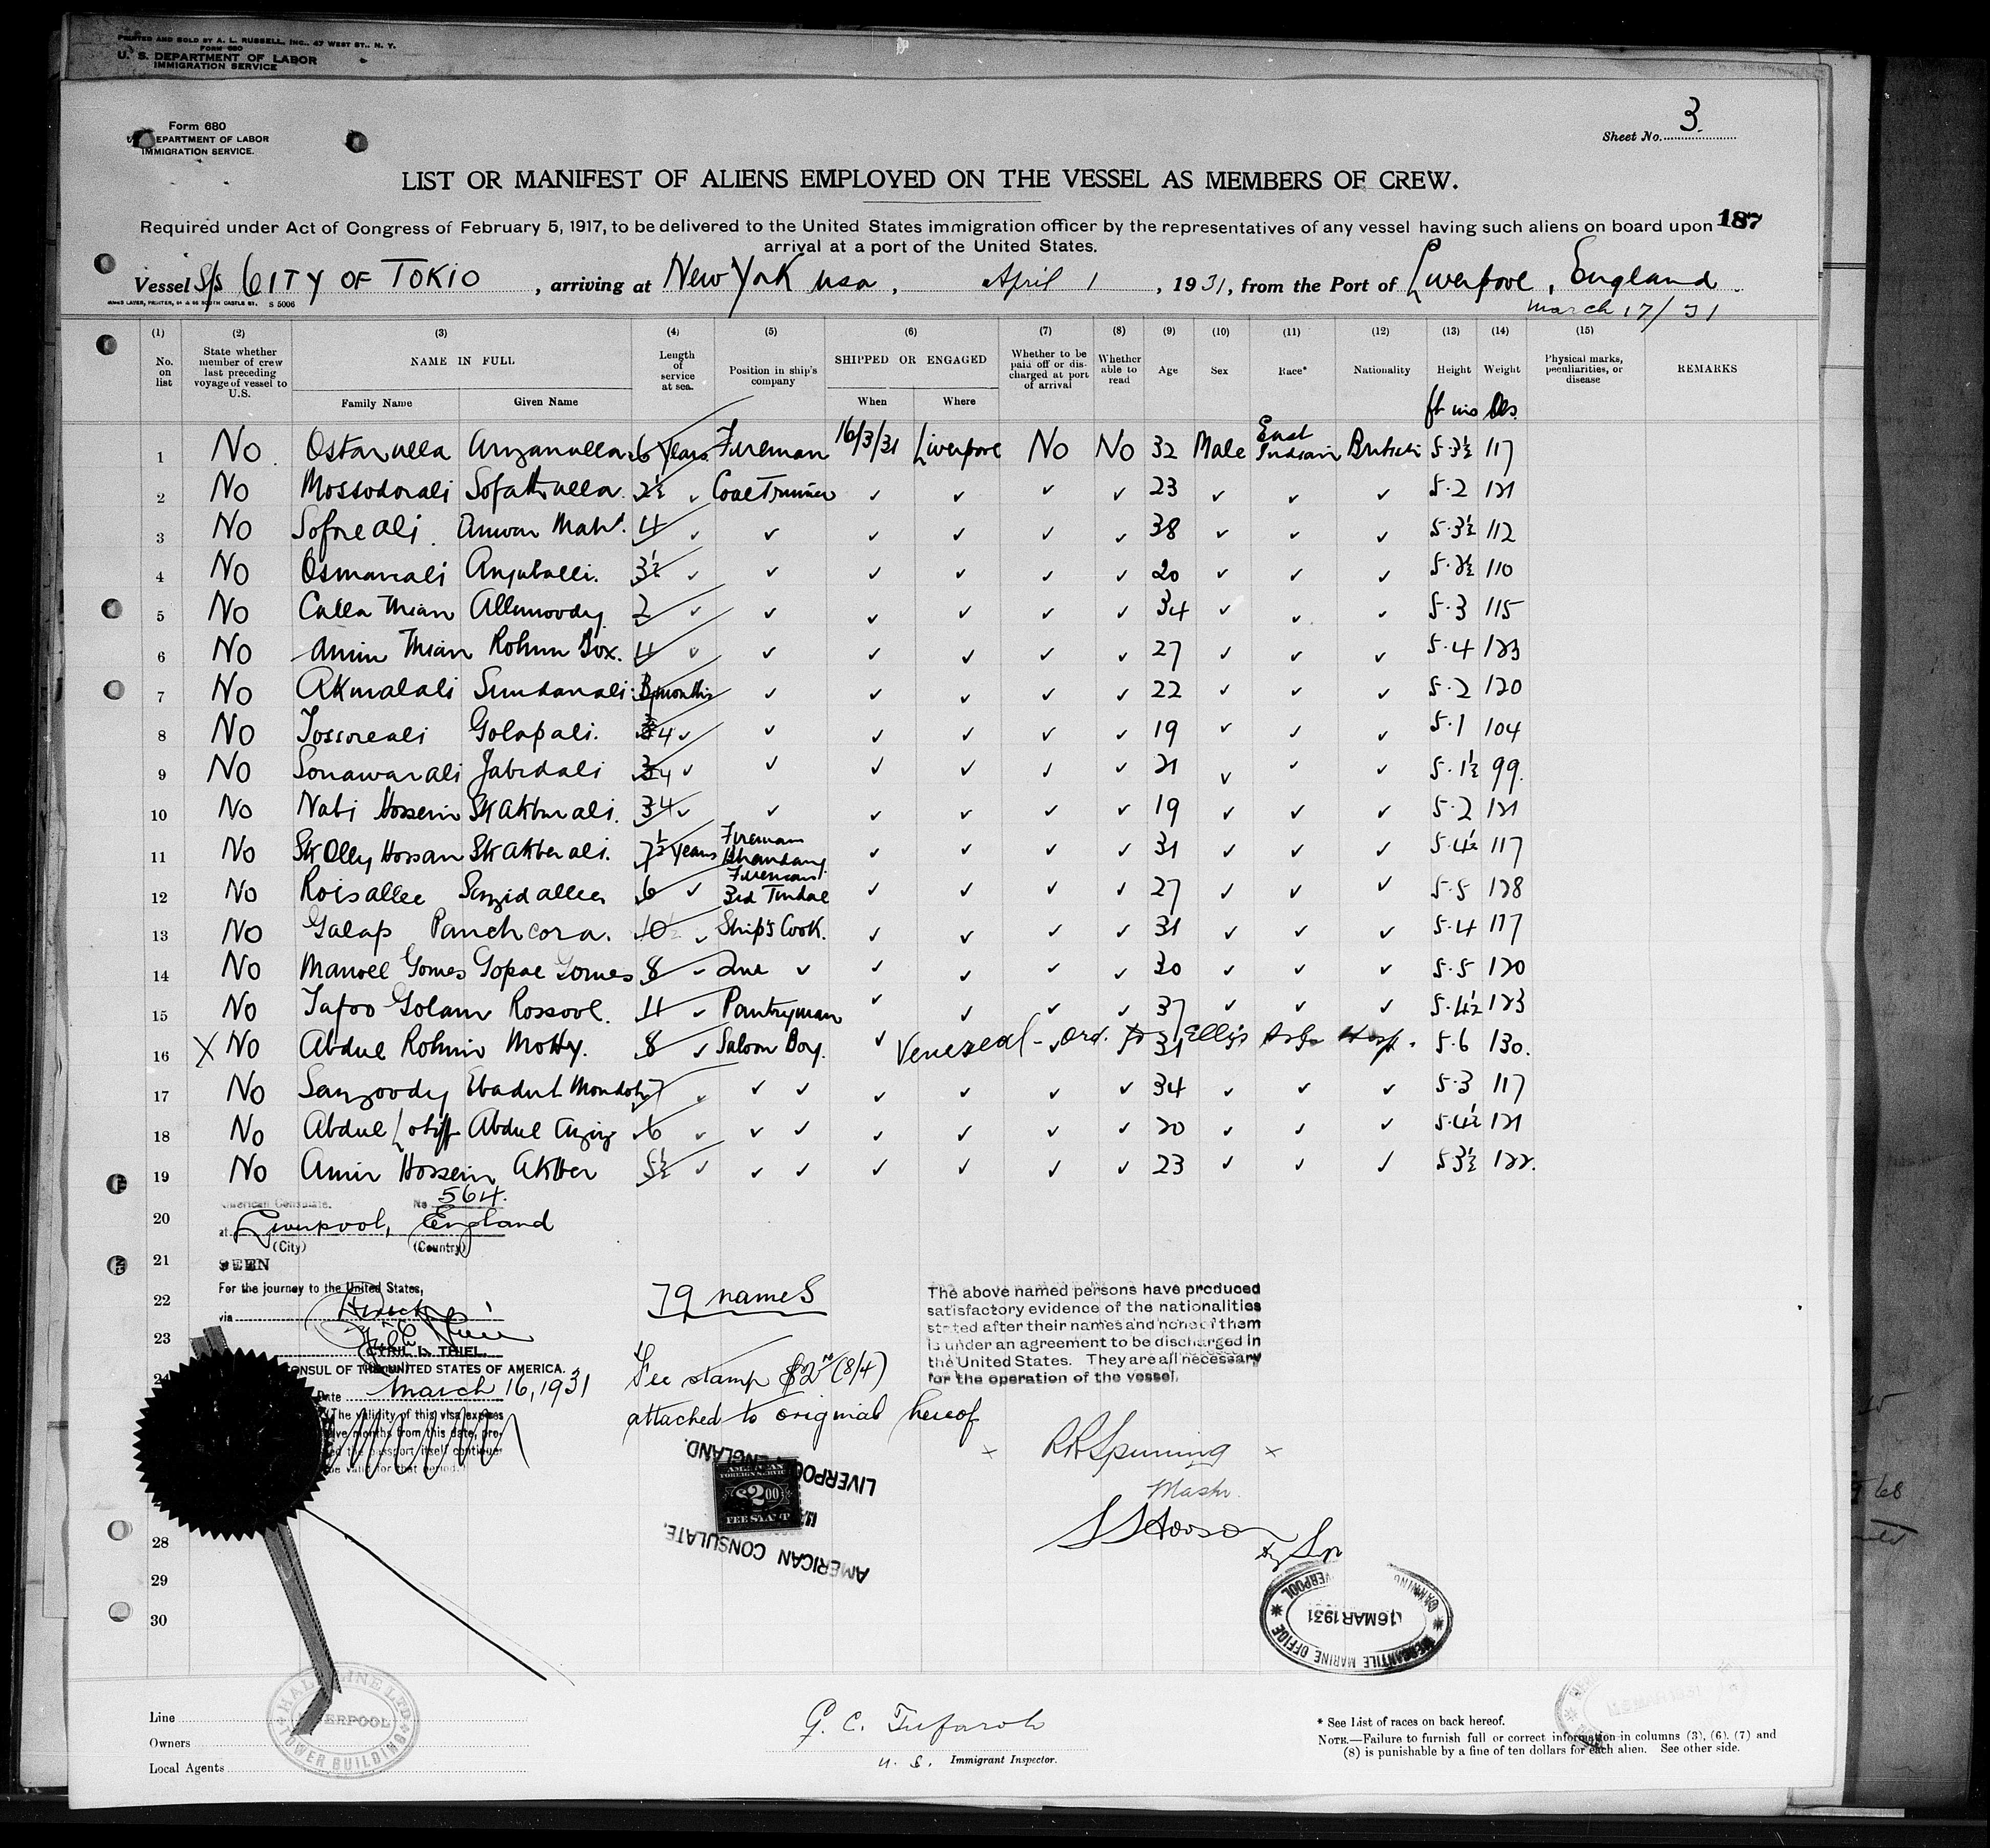 PRINTED AND SOLD BY A. L. RUSSELL, INC., 47 WEST ST., N. Y.
FORM 680
U. S. DEPARTMENT OF LABOR
IMMIGRATION SERVICE
Form 680
DEPARTMENT OF LABOR
IMMIGRATION SERVICE.
Sheet No. 3
LIST OR MANIFEST OF ALIENS EMPLOYED ON THE VESSEL AS MEMBERS OF CREW.
Required under Act of Congress of February 5, 1917, to be delivered to the United States immigration officer by the representatives of any vessel having such aliens on board upon 187
arrival at a port of the United States.
Vessel S/S CITY OF TOKIO, arriving at New York usa, April 1, 1931, from the Port of Liverpool, England
S 5006
March 17/31
(1) (2) (3) (4) (5) (6) (7) (8) (9) (10) (11) (12) (13) (14) (15)
No. on list State whether member of crew last preceding voyage of vessel to U.S. NAME IN FULL Length of service at sea. Position in ship's company SHIPPED OR ENGAGED Whether to be paid off or discharged at port of arrival Whether able to read Age Sex Race* Nationality Height Weight Physical marks, peculiarities, or disease REMARKS
Family Name Given Name When Where
ft ins lbs.
1 No Ostarulla Amzanulla 6 years Fireman 16/3/31 Liverpool No No 32 Male East Indian British 5·3½ 117
2 No Mossodorali Sofathulla 2½ ✓ Coal Trimmer ✓ ✓ ✓ ✓ 23 ✓ ✓ ✓ 5·2 121
3 No Sofre ali Anwar Mah'. 4 ✓ ✓ ✓ ✓ ✓ ✓ 38 ✓ ✓ ✓ 5·3½ 112
4 No Osmanali 3½ ✓ ✓ ✓ ✓ ✓ ✓ 20 ✓ ✓ ✓ 110
5 No Calla Mian Allimoody 2 ✓ ✓ ✓ ✓ ✓ ✓ 34 ✓ ✓ ✓ 5·3 115
6 No Amin Mian Rohim Box. 4 ✓ ✓ ✓ ✓ ✓ ✓ 27 ✓ ✓ ✓ 5·4 123
7 No Akmalali Sundarali months ✓ ✓ ✓ ✓ ✓ 22 ✓ ✓ ✓ 5·2 120
8 No Tossoreali Golapali. ✓ ✓ ✓ ✓ ✓ ✓ 19 ✓ ✓ ✓ 5·1 104
9 No Sonawarali Jabidali ✓ ✓ ✓ ✓ ✓ ✓ 21 ✓ ✓ ✓ 5·1½ 99.
10 No Nabi Hossein Sk Akbur ali. ✓ ✓ ✓ ✓ ✓ ✓ 19 ✓ ✓ ✓ 5·2 121
11 No Sk Olly Hossan Sk Akber ali. 7½ years Fireman Bhandary ✓ ✓ ✓ ✓ 31 ✓ ✓ ✓ 5·4½ 117
12 No Roisallee Sayzidallee 6 ✓ Firemans 3rd Tindal ✓ ✓ ✓ ✓ 27 ✓ ✓ ✓ 5·5 128
13 No Galap Panchcora. 10 ✓ Ship's Cook. ✓ ✓ ✓ ✓ 31 ✓ ✓ ✓ 5·4 117
14 No Manoel Gomes Gopal Gomes 8 ✓ 2nd ✓ ✓ ✓ ✓ ✓ 30 ✓ ✓ ✓ 5·5 120
15 No Tafoo Golam Rossool. 4 ✓ Pantryman ✓ ✓ ✓ ✓ 37 ✓ ✓ ✓ 5·4½ 123
16 X No Abdul Rohim Motty. 8 ✓ Saloon Boy. ✓ Venereal - ord. to 31 Ellis Isl. Hosp. 5·6 130.
17 No Sayzoody Ebadul Mondol 7 ✓ ✓ ✓ ✓ ✓ ✓ ✓ 34 ✓ ✓ ✓ 5·3 117
18 No Abdul Lotiff Abdul Aziz 6 ✓ ✓ ✓ ✓ ✓ ✓ ✓ 20 ✓ ✓ ✓ 5·4½ 121
19 No Amir Hossein Akber 5½ ✓ ✓ ✓ ✓ ✓ ✓ ✓ 23 ✓ ✓ ✓ 5 3½ 122.
American Consulate. No 564.
20 at Liverpool, England
(City) (Country)
21 SEEN
For the journey to the United States,
22 via
79 names
The above named persons have produced
satisfactory evidence of the nationalities
stated after their names and none of them
is under an agreement to be discharged in
the United States. They are all necessary
for the operation of the vessel.
23
CYRIL L. THIEL.
CONSUL OF THE UNITED STATES OF AMERICA.
24 Date March 16, 1931
Fee stamp $2 00 (8/4)
attached to original hereof
(The validity of this visa expires
twelve months from this date, pro-
vided the passport itself continues
to be valid for that period.)
x RR Spurring x
Mastr.
AMERICAN FOREIGN SERVICE
$2.00
FEE STAMP
AMERICAN CONSULATE,
LIVERPOOL, ENGLAND.
28
29
30
MERCANTILE MARINE OFFICE
CANNING LIVERPOOL
16 MAR 1931
HALL LINE LTD
LIVERPOOL
TOWER BUILDING
Line
Owners
Local Agents
G. C. Tufaroh
U. S. Immigrant Inspector.
* See List of races on back hereof.
NOTE.—Failure to furnish full or correct information in columns (3), (6), (7) and
(8) is punishable by a fine of ten dollars for each alien. See other side.